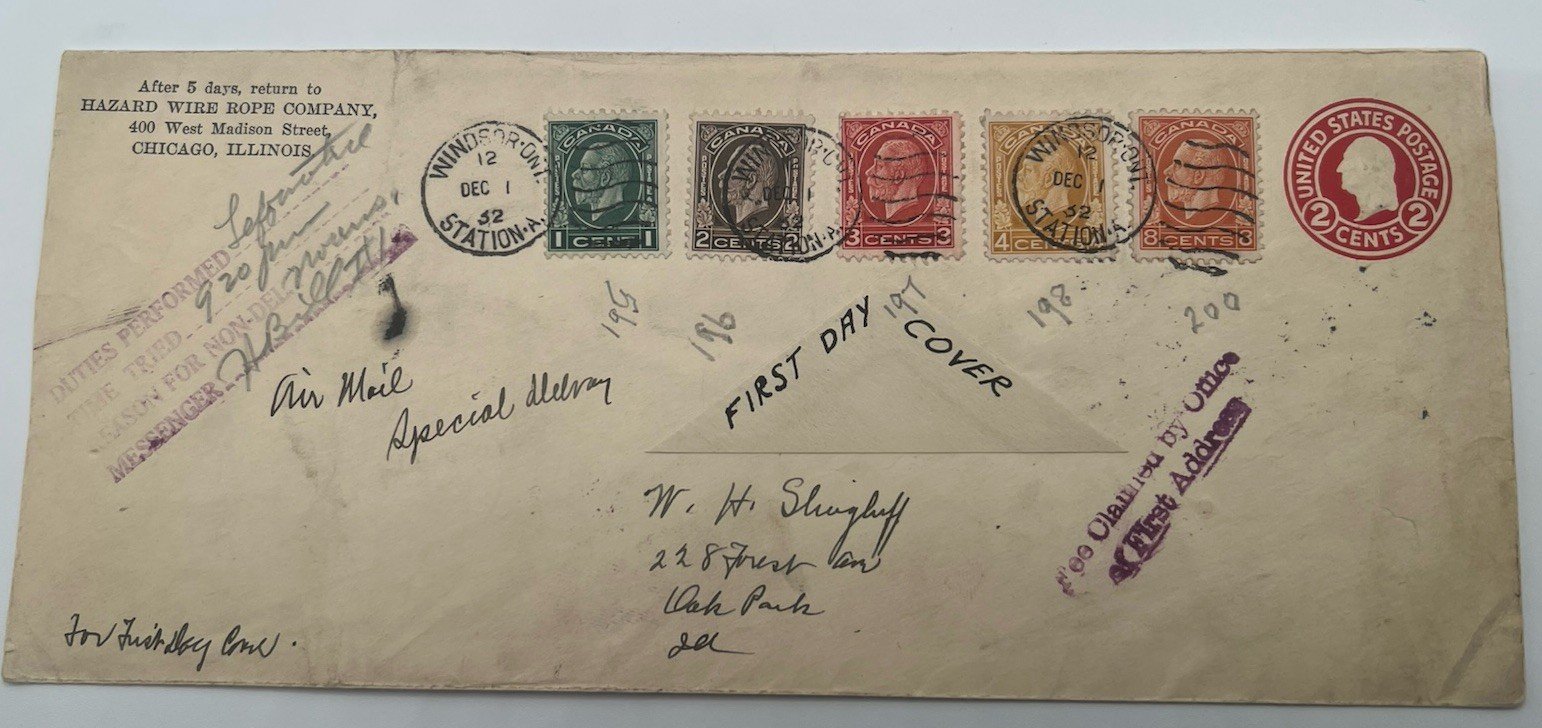 After 5 days, return to
HAZARD WIRE ROPE COMPANY,
400 West Madison Street,
CHICAGO, ILLINOIS
DUTIES PERFORMED
TIME TRIED 920 pm
REASON FOR NON-DEL
MESSENGER
WINDSOR·ONT
12
DEC 1
32
STATION·A.
CANADA
POSTES POSTAGE
1 CENT 1
CANADA
2 CENTS 2
WINDSOR·ONT
DEC 1
32
STATION·A.
CANADA
3 CENTS 3
CANADA
4 CENTS
WINDSOR·ONT.
12
DEC 1
32
STATION·A.
CANADA
8 CENTS 8
UNITED STATES POSTAGE
2 CENTS 2
195
196
197
198
200
FIRST DAY COVER
Air Mail
Special Delivery
Fee Claimed by Office
of First Address
W. H. Slingluff
228 Forest Ave
Oak Park
Ill
For First Day Cover.